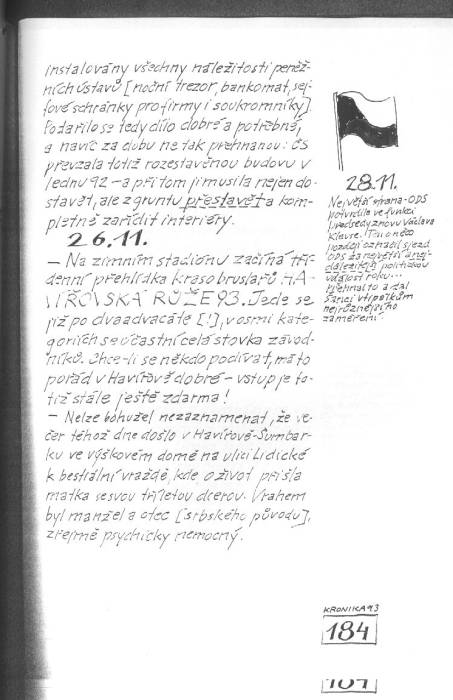 instalovány všechny náležitosti peněž-
ních ústavů [noční trezor, bankomat, sej-
fové schránky pro firmy i soukromníky].
Podařilo se tedy dílo dobré a potřebné,
a navíc za dobu ne tak přehnanou: ČS
převzala totiž rozestavěnou budovu v
lednu 92 – a přitom ji musila nejen do-
stavět, ale z gruntu přestavět a kom-
pletně zařídit interiéry.
26.11.
– Na zimním stadiónu začíná tří-
denní přehlídka krasobruslařů HA-
VÍŘOVSKÁ RŮŽE 93. Jede se
již po dvaadvacáté [!], v osmi kate-
goriích se účastní celá stovka závod-
níků. Chce-li se někdo podívat, má to
pořád v Havířově dobré – vstup je to-
tiž stále ještě zdarma!
– Nelze bohužel nezaznamenat, že ve-
čer téhož dne došlo v Havířově-Šumbar-
ku ve výškovém domě na ulici Lidické
k bestiální vraždě, kde o život přišla
matka se svou tříletou dcerou. Vrahem
byl manžel a otec [srbského původu],
zřejmě psychicky nemocný.
28.11.
Největší strana - ODS
potvrdila ve funkci
předsedy znovu Václava
Klause.
později označil sjezd
ODS za největší a nej-
důležitější politickou
událost roku...
Přehnal to a dal
šanci vtipálkům
nejrůznějšího
zaměření.
KRONIKA 93
184
184